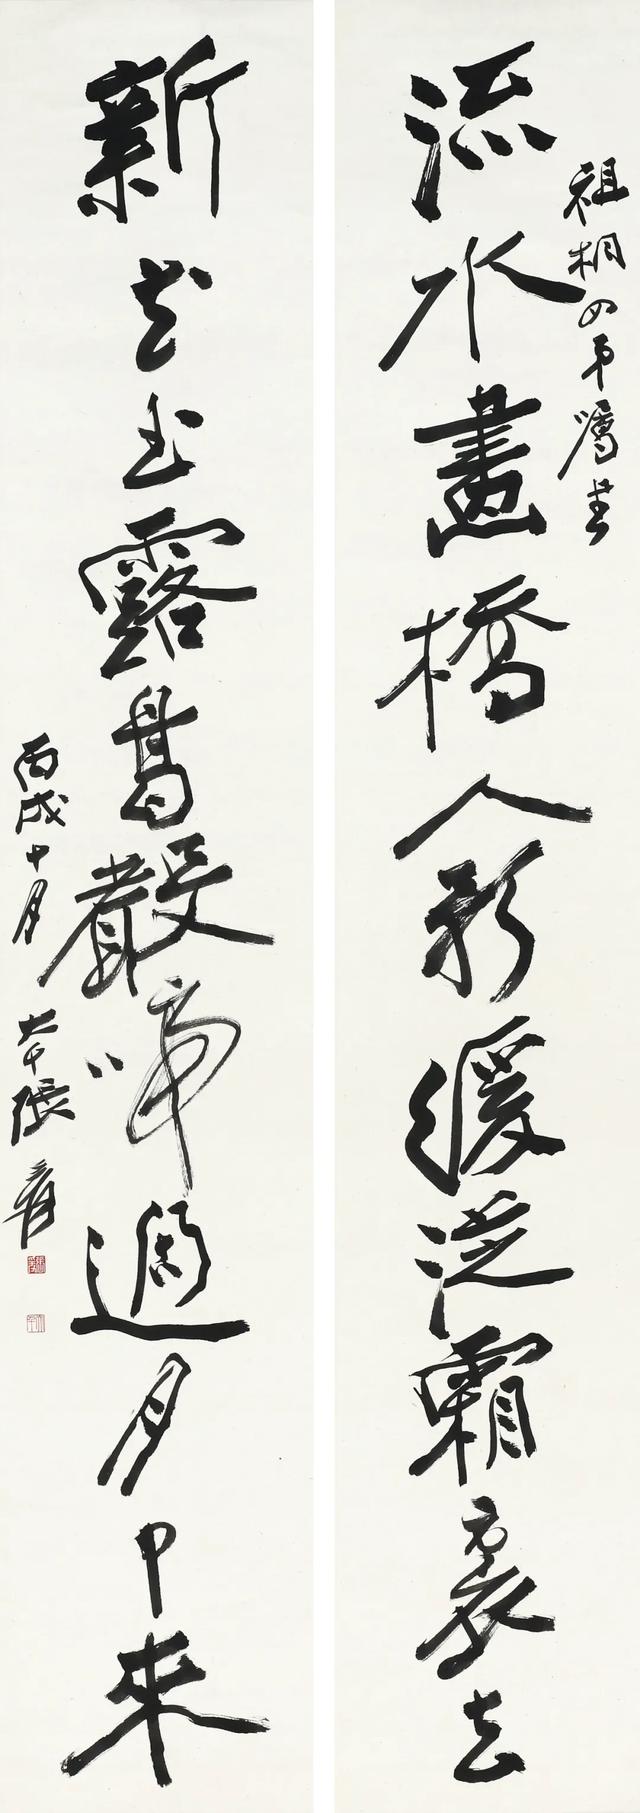 祖桐四弟囑書
流水畫橋人影緩從霜裏去
新花玉露鶯聲啼過月中來
丙戌十月 大千張爰